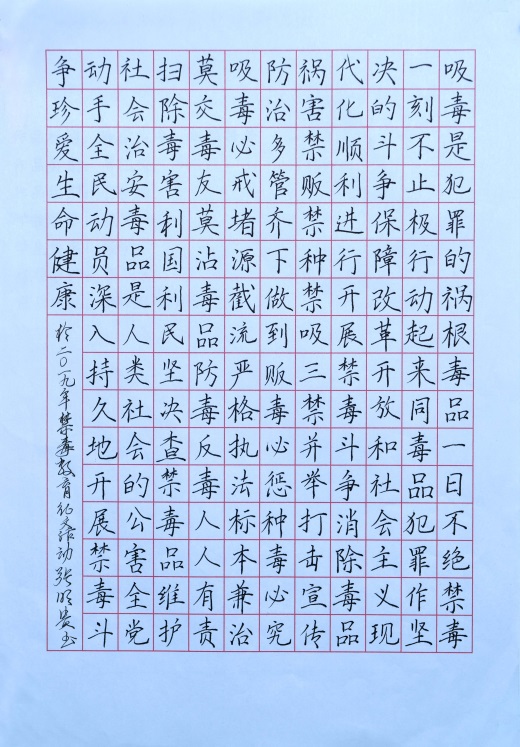 吸毒是犯罪的祸根毒品一日不绝禁毒
一刻不止极行动起来同毒品犯罪作坚
决的斗争保障改革开放和社会主义现
代化顺利进行开展禁毒斗争消除毒品
祸害禁贩禁种禁吸三禁并举打击宣传
防治多管齐下做到贩毒必惩种毒必究
吸毒必戒堵源截流严格执法标本兼治
莫交毒友莫沾毒品防毒反毒人人有责
扫除毒害利国利民坚决查禁毒品维护
社会治安毒品是人类社会的公害全党
动手全民动员深入持久地开展禁毒斗
争珍爱生命健康
於二〇一九年禁毒教育活动张明书